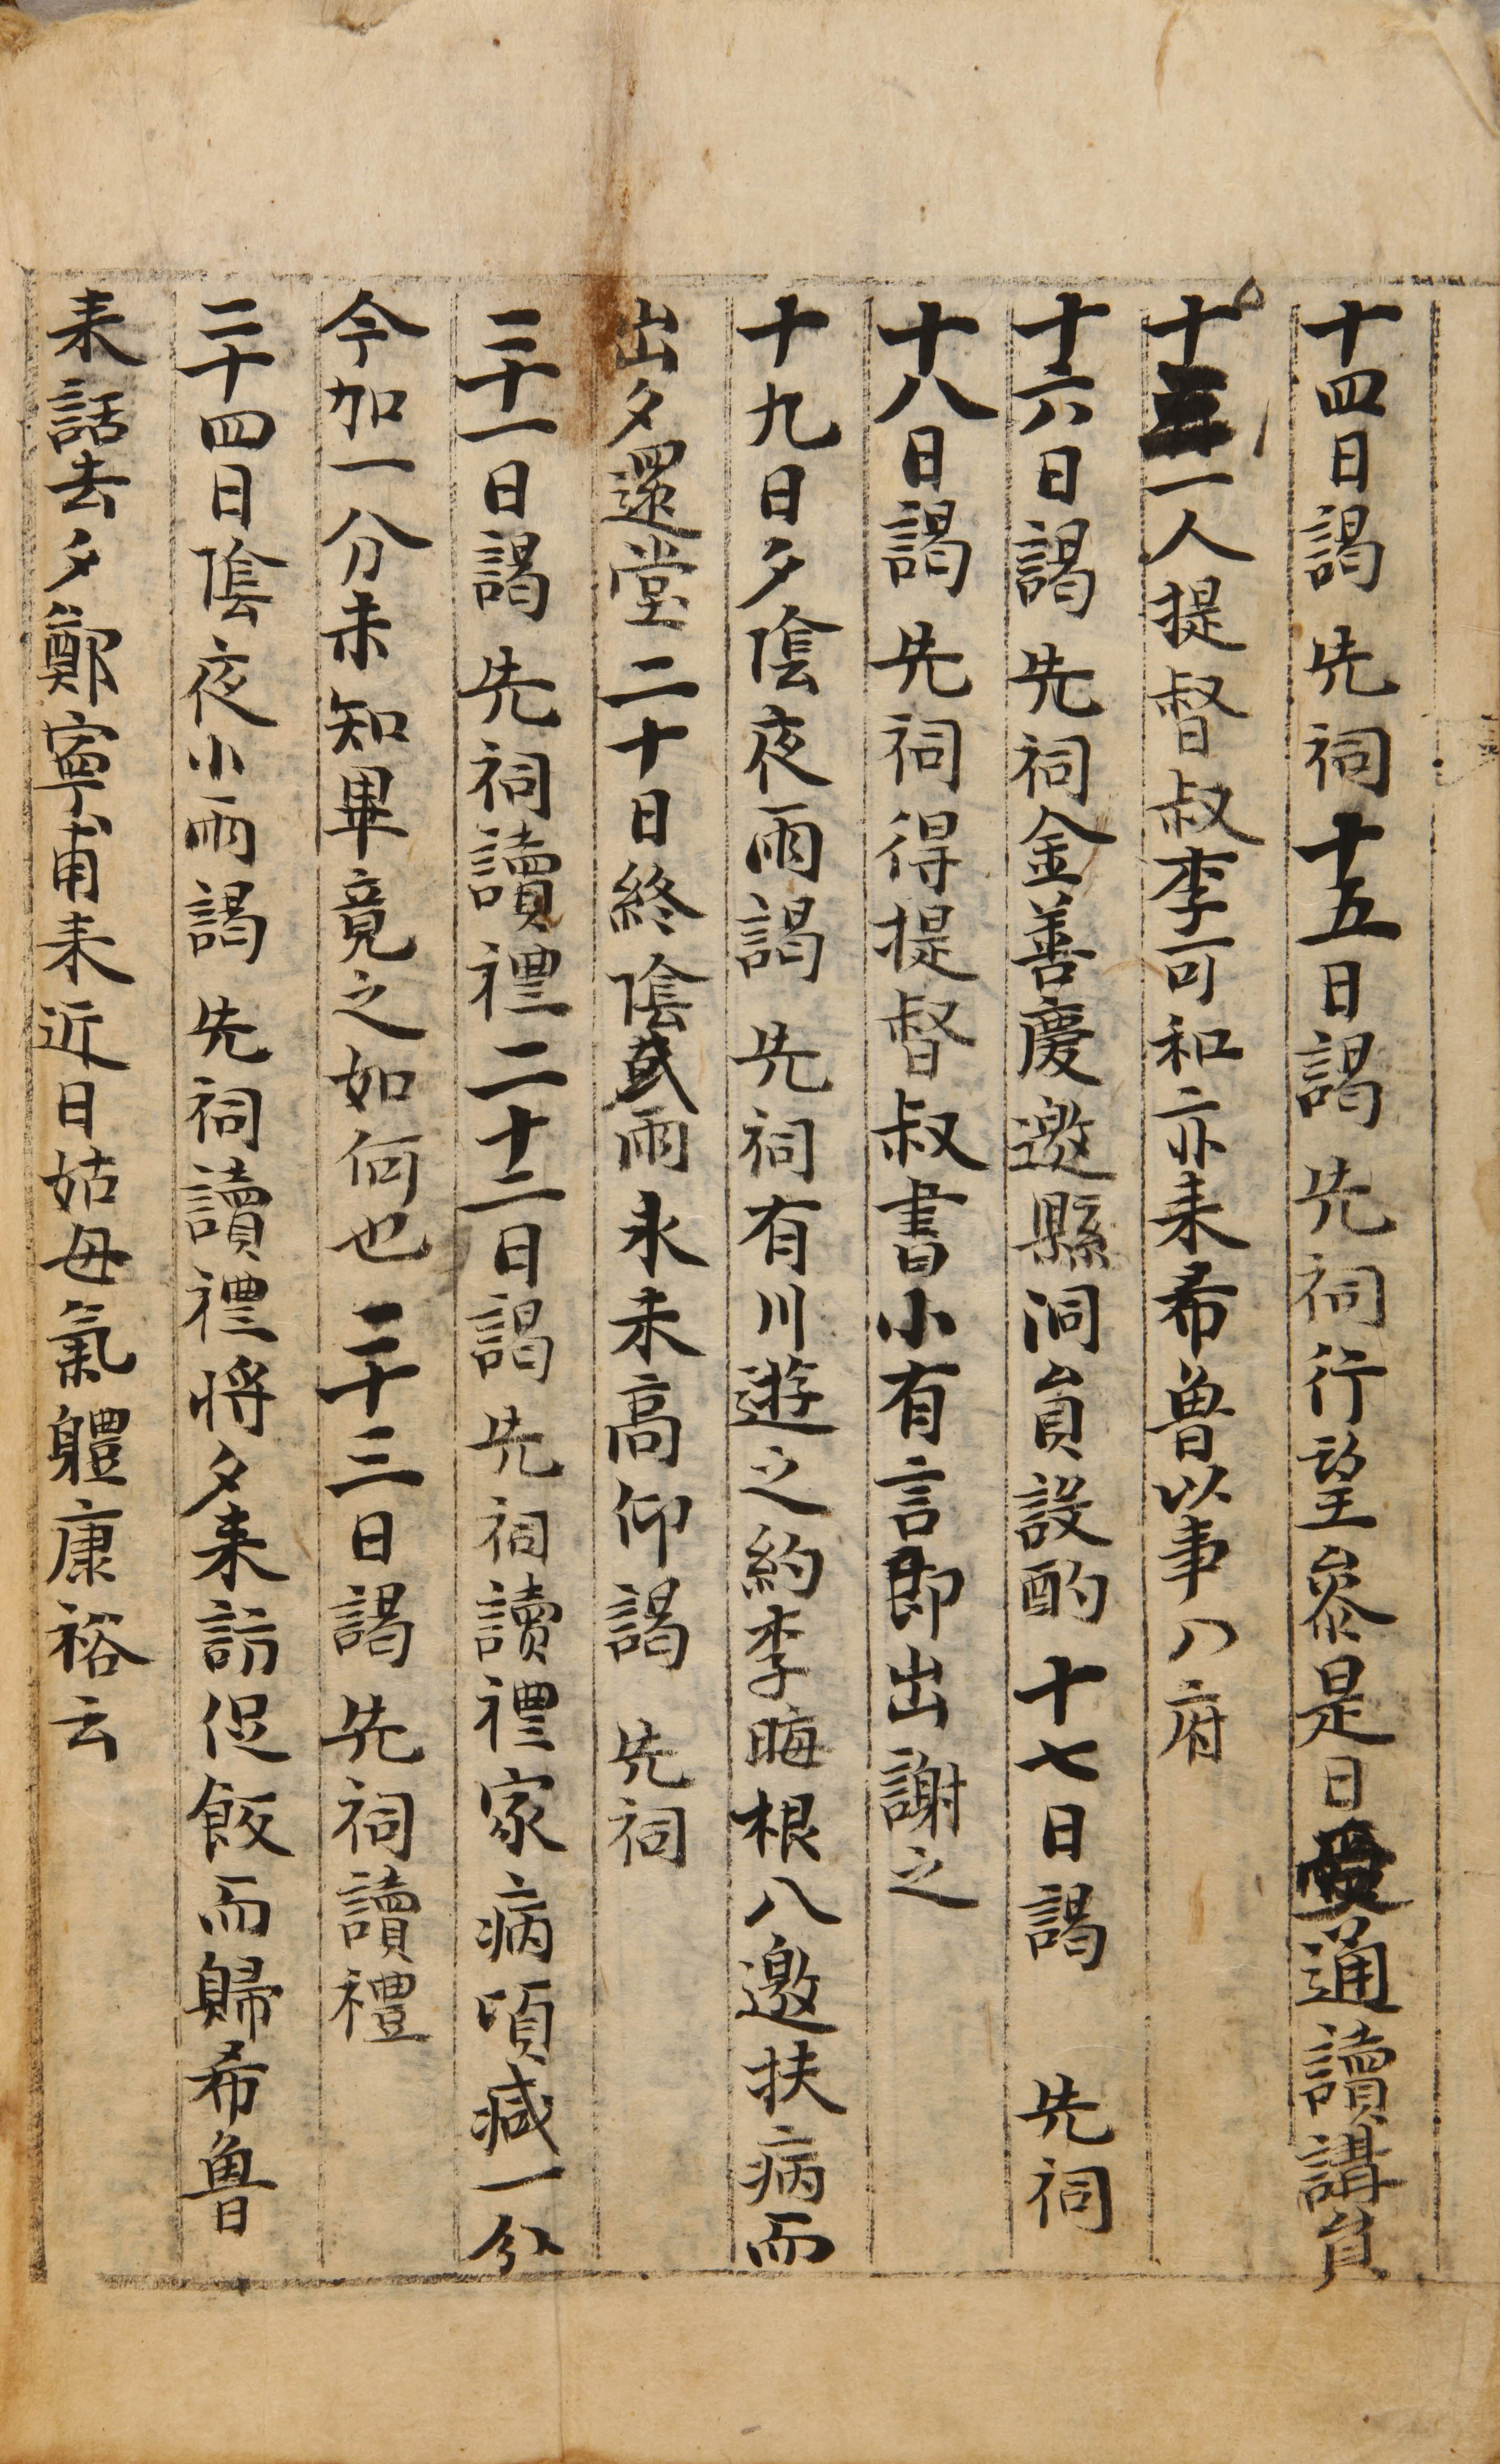 十四日謁 先祠十五日謁 先祠行望參是日受通讀講員
十五一人提督叔李可和亦来希魯以事入府
十六日謁 先祠金善慶邀縣洞員設酌十七日謁 先祠
十八日謁 先祠得提督叔書小有言即出謝之
十九日夕陰夜雨謁 先祠有川遊之約李晦根八邀扶病而
出夕還堂二十日終陰或雨永未高仰謁 先祠
二十一日謁 先祠讀禮二十二日謁 先祠讀禮家病頃减一分
今加一分未知畢竟之如何也二十三日謁 先祠讀禮
二十四日陰夜小雨謁 先祠讀禮将夕来訪促飯而歸希魯
来話去夕鄭寧甫来近日姑母氣軆康裕云